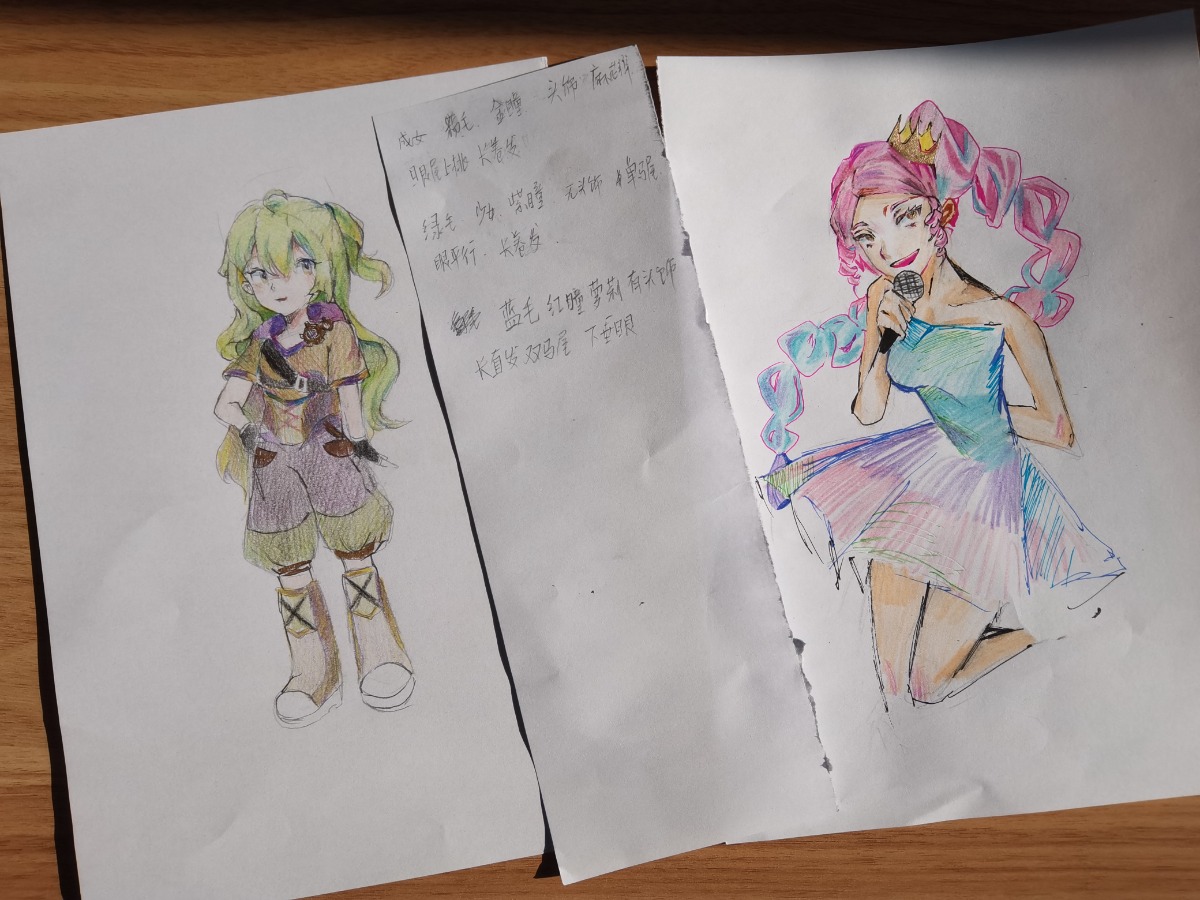 成女 粉毛、金瞳 头饰 麻花辫
眼尾上挑 长卷发
绿毛 少女、紫瞳 无头饰 单马尾
眼平行、长卷发.
蓝毛 红瞳 萝莉 有头饰
长直发 双马尾 下垂眼